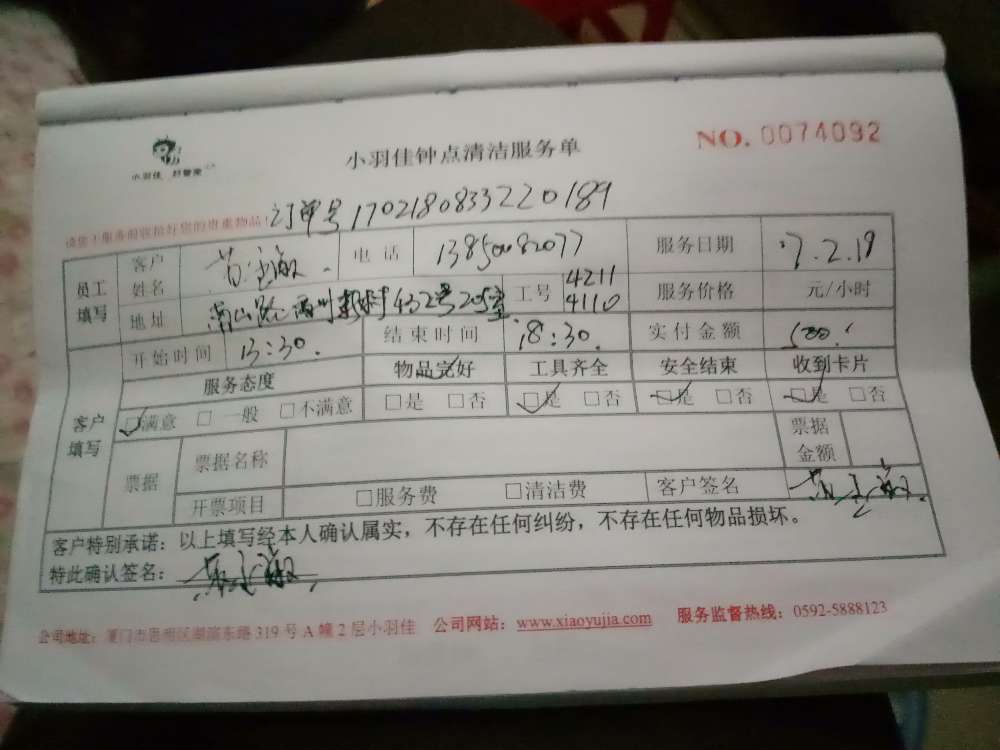 小羽佳 好管家
小羽佳钟点清洁服务单
NO. 0074092
订单号1702180833220189
请您于服务前收拾好您的贵重物品!
员工填写 客户姓名 电话 13850082077 服务日期 17.2.19
地址 432号205室 工号 4211 4110 服务价格 元/小时
开始时间 13:30. 结束时间 18:30. 实付金额 500.
客户填写 服务态度 物品完好 工具齐全 安全结束 收到卡片
☑满意 □一般 □不满意 □是 □否 ☑是 □否 ☑是 □否 ☑是 □否
票据 票据名称 票据金额
开票项目 □服务费 □清洁费 客户签名
客户特别承诺：以上填写经本人确认属实，不存在任何纠纷，不存在任何物品损坏。
特此确认签名：
公司地址：厦门市思明区湖滨东路 319 号 A 幢 2 层小羽佳 公司网站：www.xiaoyujia.com 服务监督热线：0592-5888123